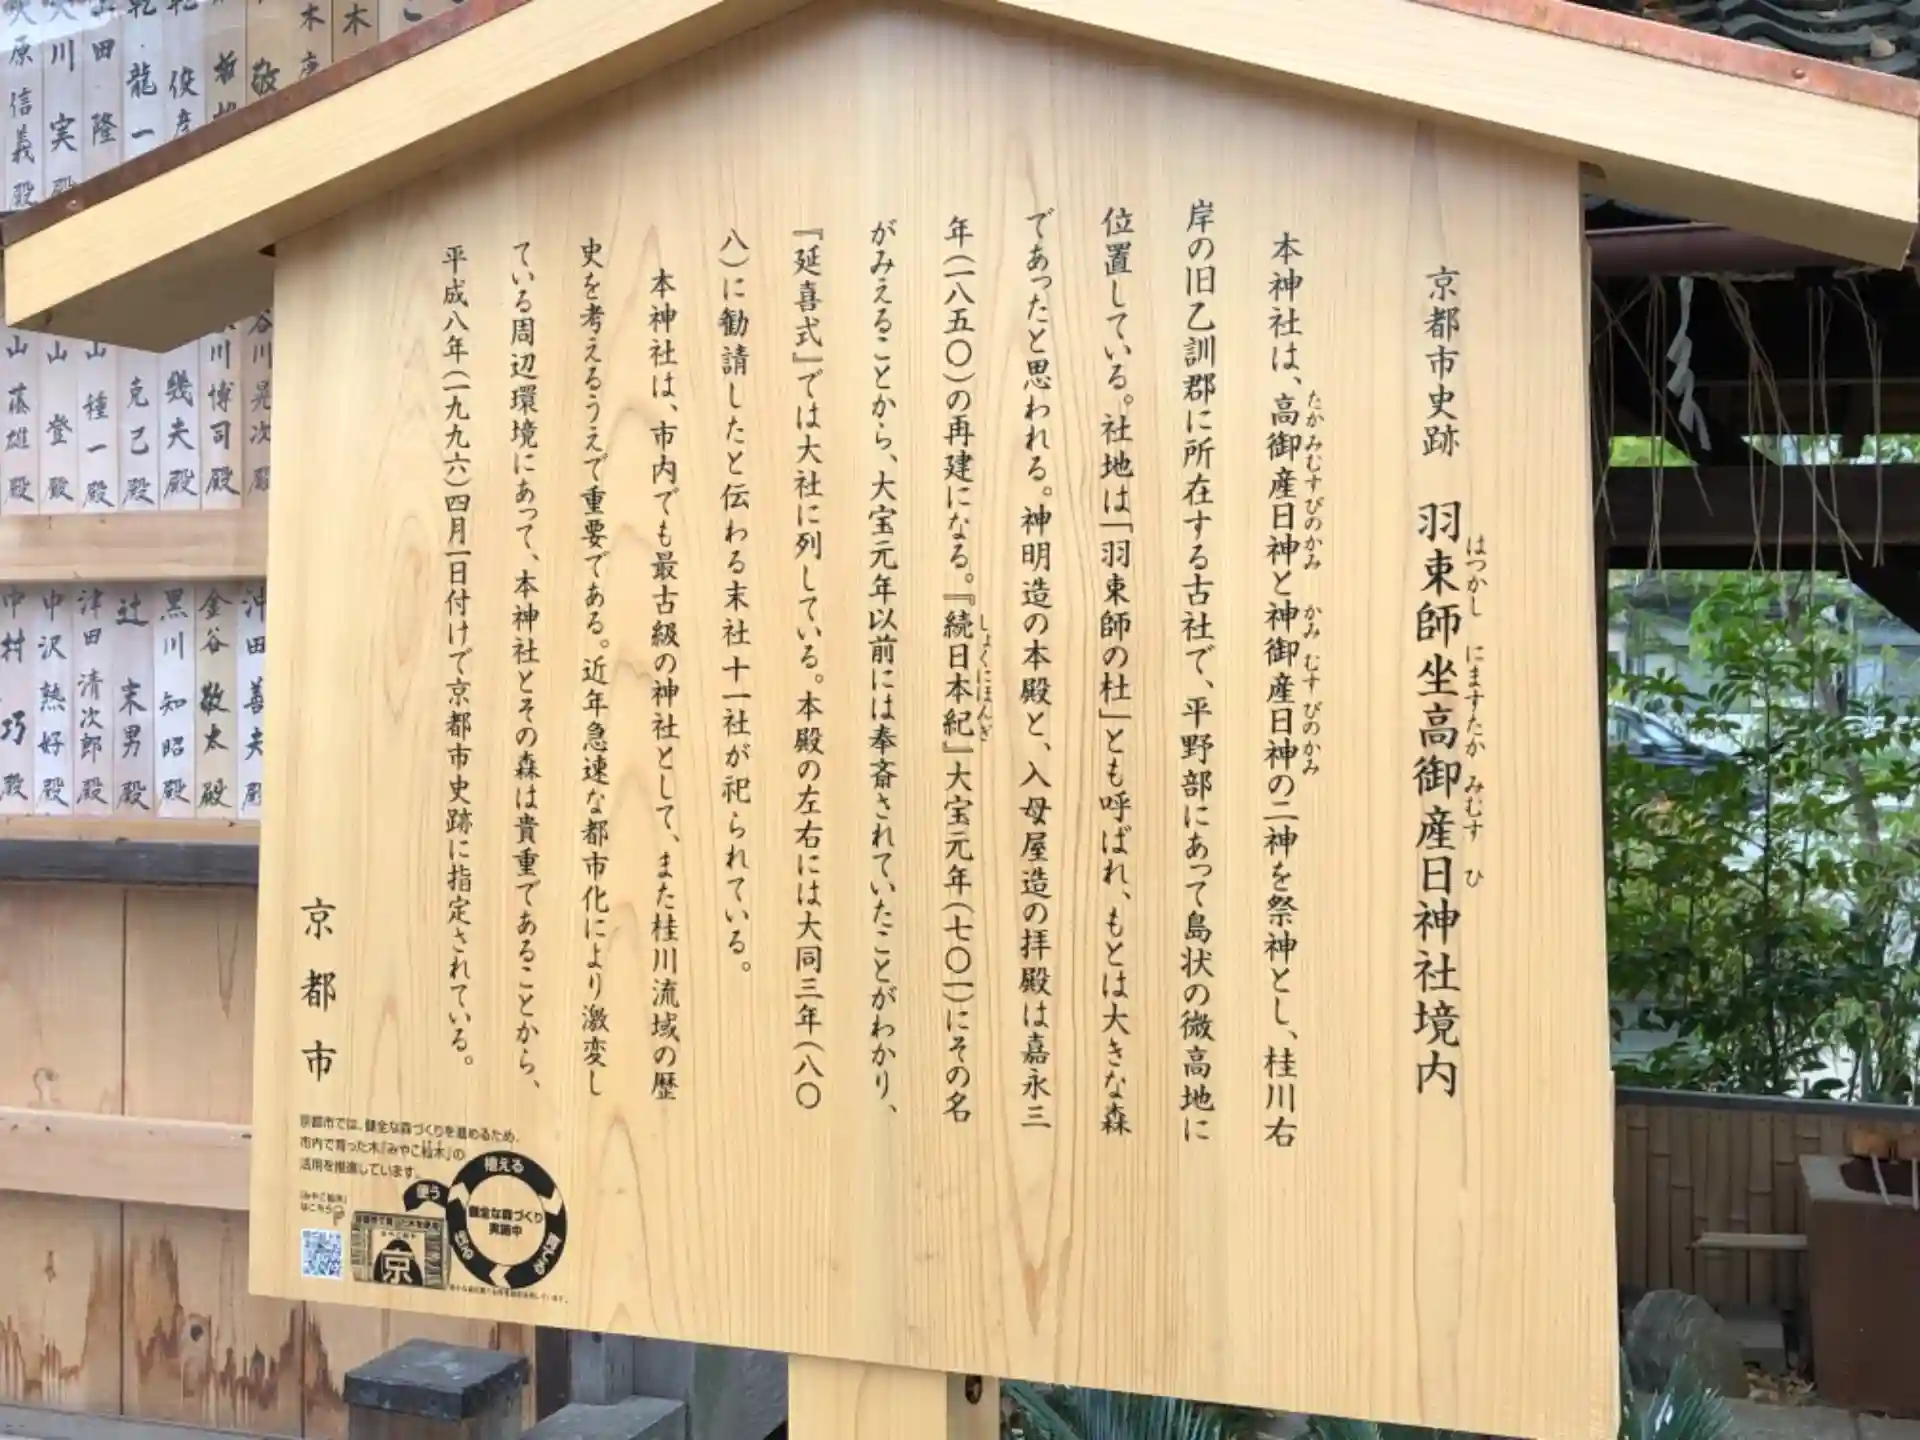 京都市史跡　羽束師坐高御産日神社境内
はつかし　にますたか　みむす　ひ
本神社は、高御産日神と神御産日神の二神を祭神とし、桂川右
たかみむすびのかみ　かみむすびのかみ
岸の旧乙訓郡に所在する古社で、平野部にあって島状の微高地に
位置している。社地は「羽束師の杜」とも呼ばれ、もとは大きな森
であったと思われる。神明造の本殿と、入母屋造の拝殿は嘉永三
年（一八五〇）の再建になる。『続日本紀』大宝元年（七〇一）にその名
しょくにほんぎ
がみえることから、大宝元年以前には奉斎されていたことがわかり、
『延喜式』では大社に列している。本殿の左右には大同三年（八〇
八）に勧請したと伝わる末社十一社が祀られている。
本神社は、市内でも最古級の神社として、また桂川流域の歴
史を考えるうえで重要である。近年急速な都市化により激変し
ている周辺環境にあって、本神社とその森は貴重であることから、
平成八年（一九九六）四月一日付けで京都市史跡に指定されている。
京都市
京都市では、健全な森づくりを進めるため、
市内で育った木『みやこ杣木』の
活用を推進しています。
植える
育てる
使う
健全な森づくり
実施中
京
沖田善夫殿
金谷敬太殿
黒川知昭殿
辻末男殿
津田清次郎殿
中沢熱好殿
中村巧殿
谷川晃次殿
川博司殿
幾夫殿
克己殿
山種一殿
山登殿